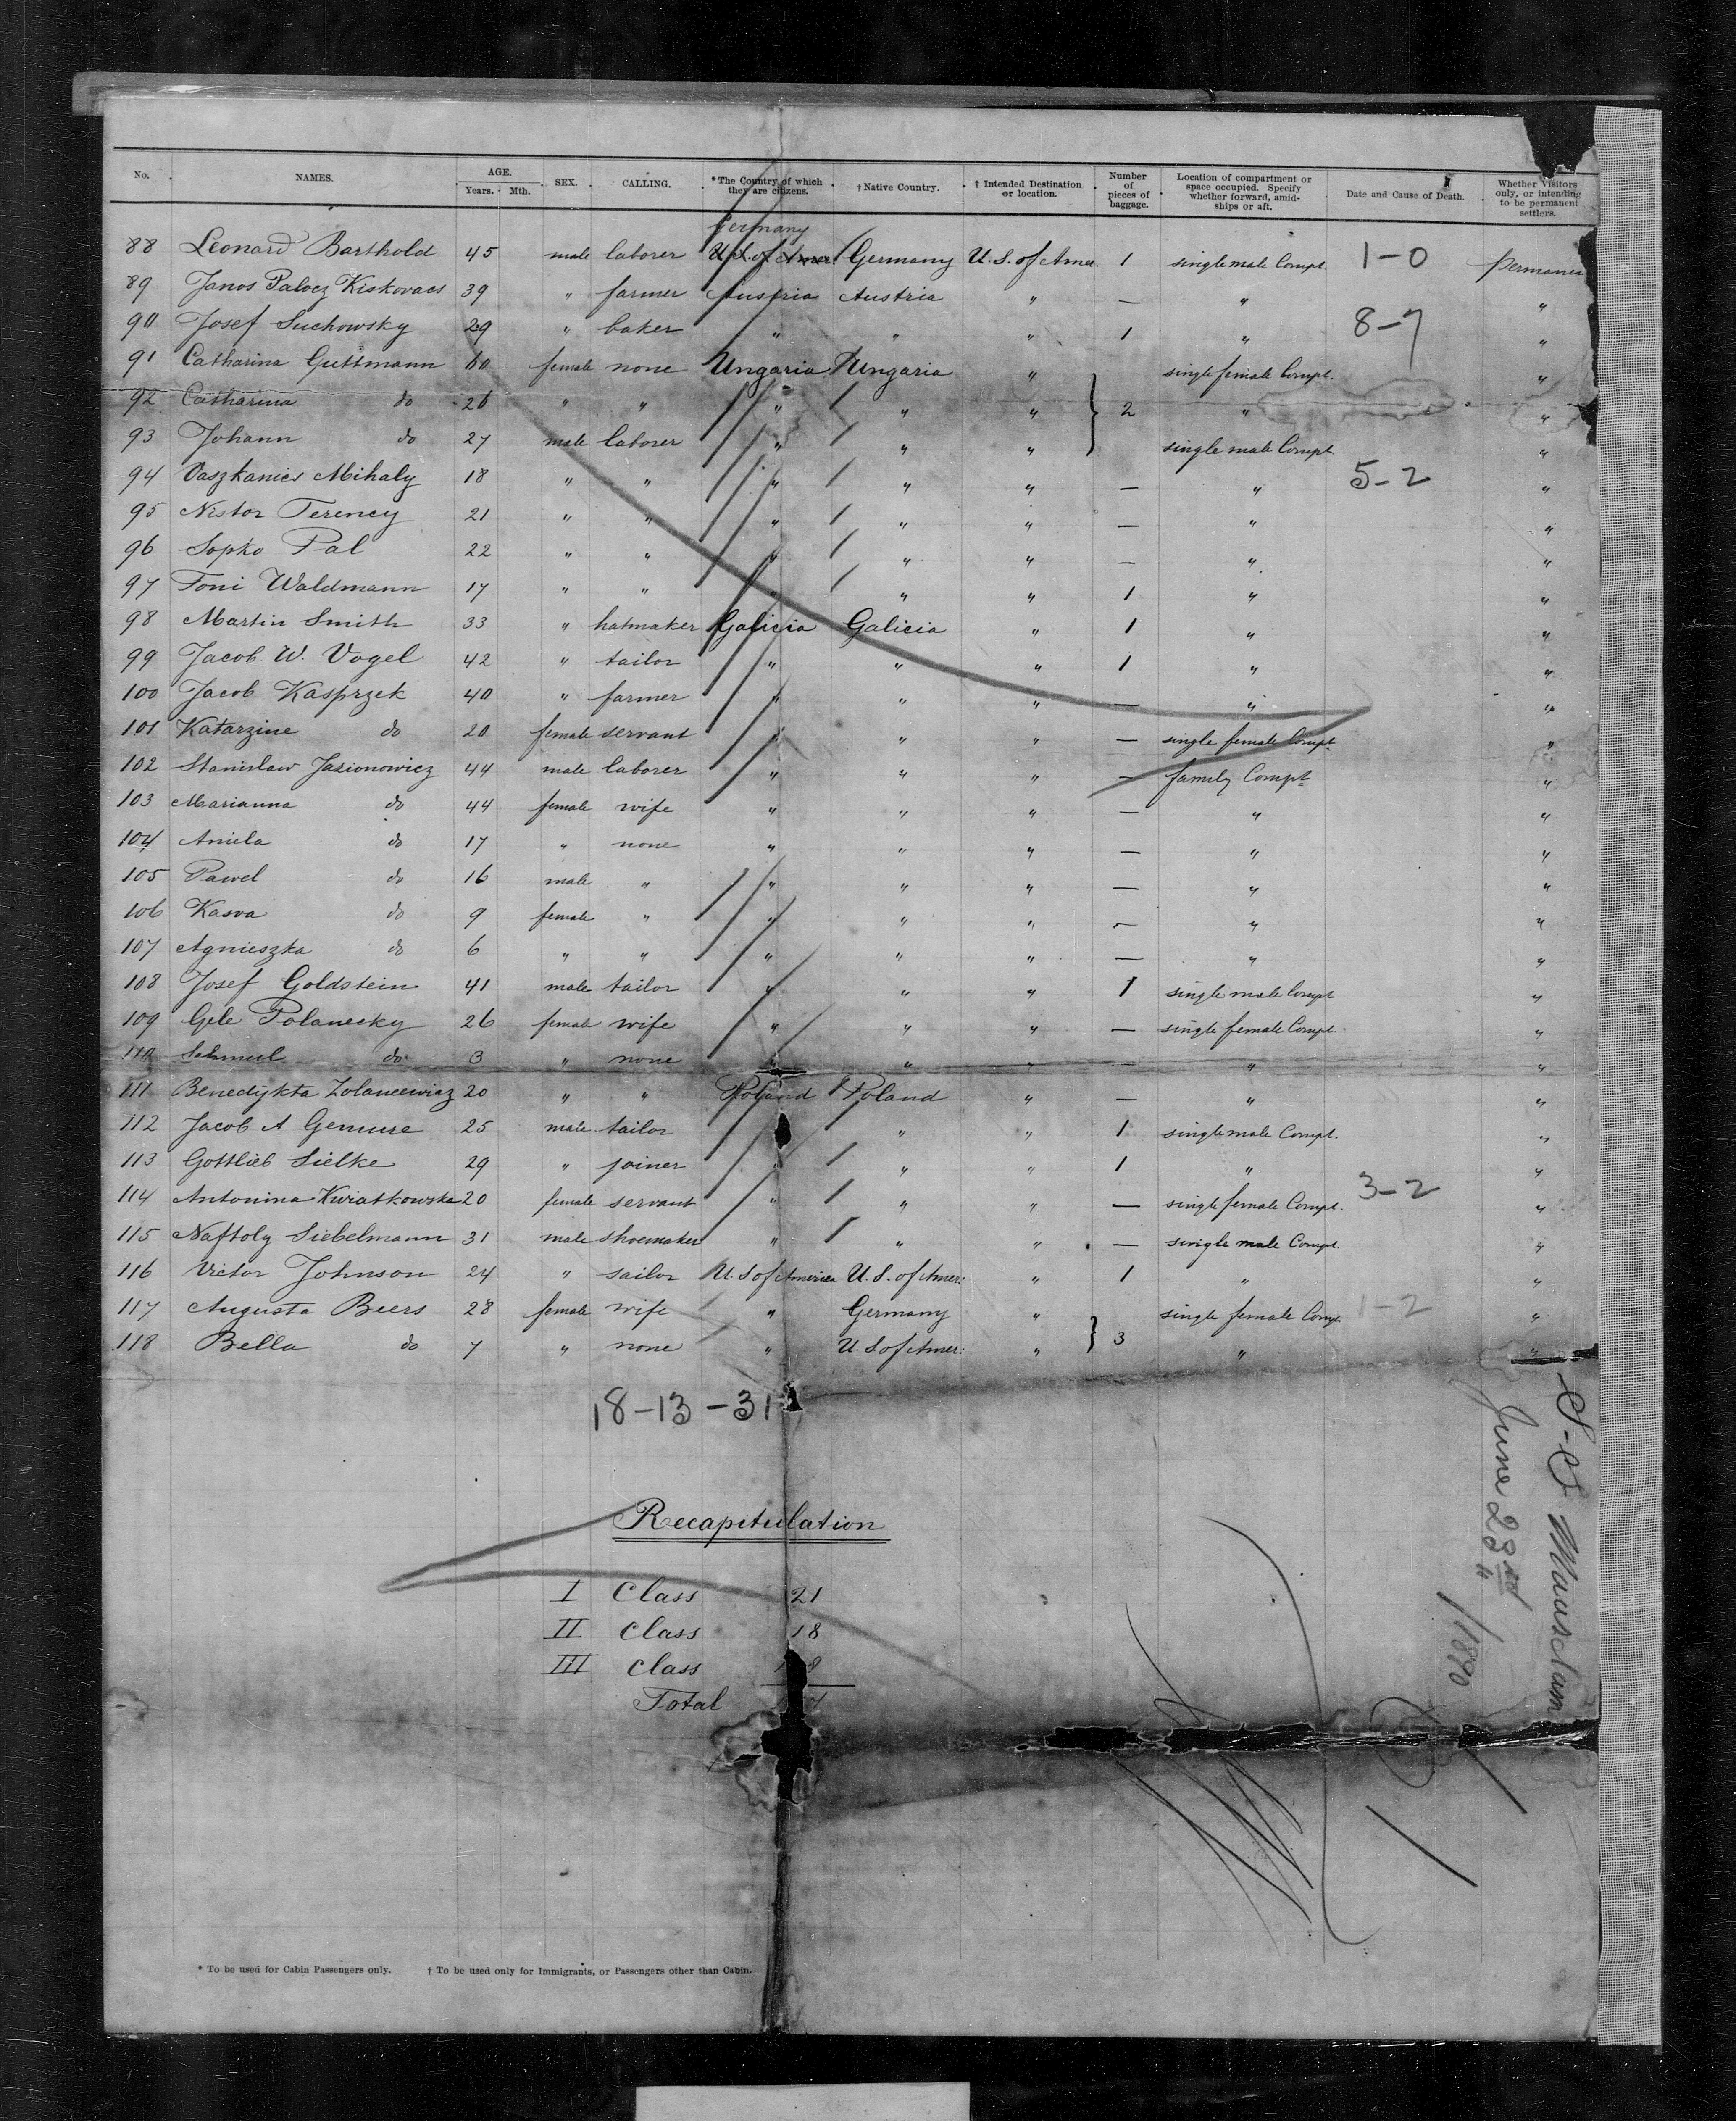 No. NAMES. AGE. Years. Mth. SEX. CALLING. * The Country of which they are citizens. † Native Country. † Intended Destination or location. Number of pieces of baggage. Location of compartment or space occupied. Specify whether forward, amidships or aft. Date and Cause of Death. Whether Visitors only, or intending to be permanent settlers.
Germany
88 Leonard Barthold 45 male laborer U.S. of Amer Germany U.S. of Amer. 1 single male Compt. 1-0 permanen
89 Janos Palocz Kiskovacs 39 " farmer Austria Austria " — " "
90 Josef Suchowsky 29 " baker " " " 1 " 8-7 "
91 Catharina Guttmann 60 female none Ungaria Ungaria " single female Compt. "
92 Catharina do 26 " " " " " } 2 " "
93 Johann do 27 male laborer " " " single male Compt "
94 Vaszkanics Mihaly 18 " " " " " — " 5-2 "
95 Nistor Ferency 21 " " " " " — " "
96 Sopko Pal 22 " " " " " — " "
97 Toni Waldmann 17 " " " " " 1 " "
98 Martin Smith 33 " hatmaker Galicia Galicia " 1 " "
99 Jacob W. Vogel 42 " tailor " " " 1 " "
100 Jacob Kasprzek 40 " farmer " " " — " "
101 Katarzine do 20 female servant " " " — single female Compt "
102 Stanislaw Jasionowicz 44 male laborer " " " — family Compt "
103 Marianna do 44 female wife " " " — " "
104 Aniela do 17 " none " " " — " "
105 Pawel do 16 male " " " " — " "
106 Kasva do 9 female " " " " — " "
107 Agnieszka do 6 " " " " " — " "
108 Josef Goldstein 41 male tailor " " " 1 single male Compt "
109 Gele Polanecky 26 female wife " " " — single female Compt. "
110 Schmul do 3 " none " " " — " "
111 Benedykta Zolancewicz 20 " " Poland Poland " — " "
112 Jacob A Gemure 25 male tailor " " " 1 single male Compt. "
113 Gottlieb Sielke 29 " joiner " " " 1 " "
114 Antonina Kwiatkowska 20 female servant " " " — single female Compt. 3-2 "
115 Naftoly Siebelmann 31 male shoemaker " " " — single male Compt. "
116 Victor Johnson 24 " sailor U.S of America U.S. of Amer: " 1 " "
117 Augusta Beers 28 female wife " Germany " single female Compt. 1-2 "
118 Bella do 7 " none " U.S of Amer: " } 3 " "
18-13-31
Recapitulation
I Class 21
II Class 18
III Class
Total
S-S Maasdam
June 23rd
/1890
* To be used for Cabin Passengers only. † To be used only for Immigrants, or Passengers other than Cabin.